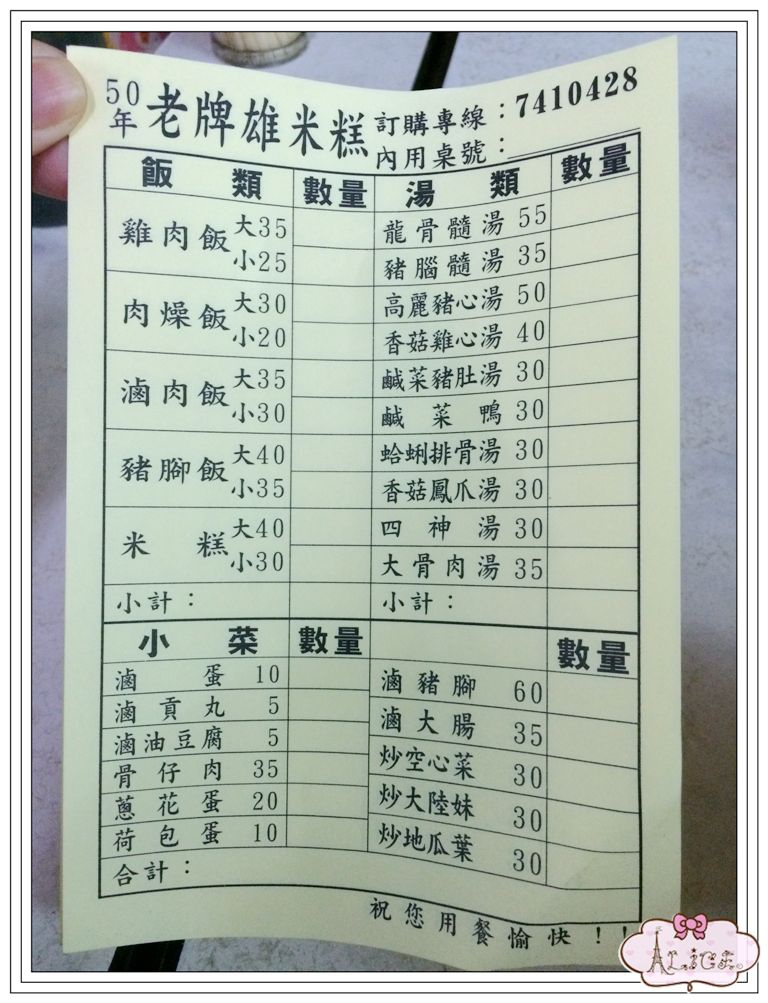 50年 老牌雄米糕 訂購專線：7410428
內用桌號：
飯類 數量 湯類 數量
雞肉飯 大35 龍骨髓湯 55
小25 豬腦髓湯 35
肉燥飯 大30 高麗豬心湯 50
小20 香菇雞心湯 40
滷肉飯 大35 鹹菜豬肚湯 30
小30 鹹菜鴨 30
豬腳飯 大40 蛤蜊排骨湯 30
小35 香菇鳳爪湯 30
米糕 大40 四神湯 30
小30 大骨肉湯 35
小計： 小計：
小菜 數量 數量
滷蛋 10 滷豬腳 60
滷貢丸 5 滷大腸 35
滷油豆腐 5 炒空心菜 30
骨仔肉 35 炒大陸妹 30
蔥花蛋 20 炒地瓜葉 30
荷包蛋 10
合計：
祝您用餐愉快！！
ALICE.